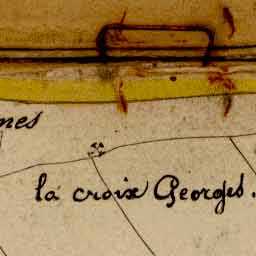 nes
la croix Georges.